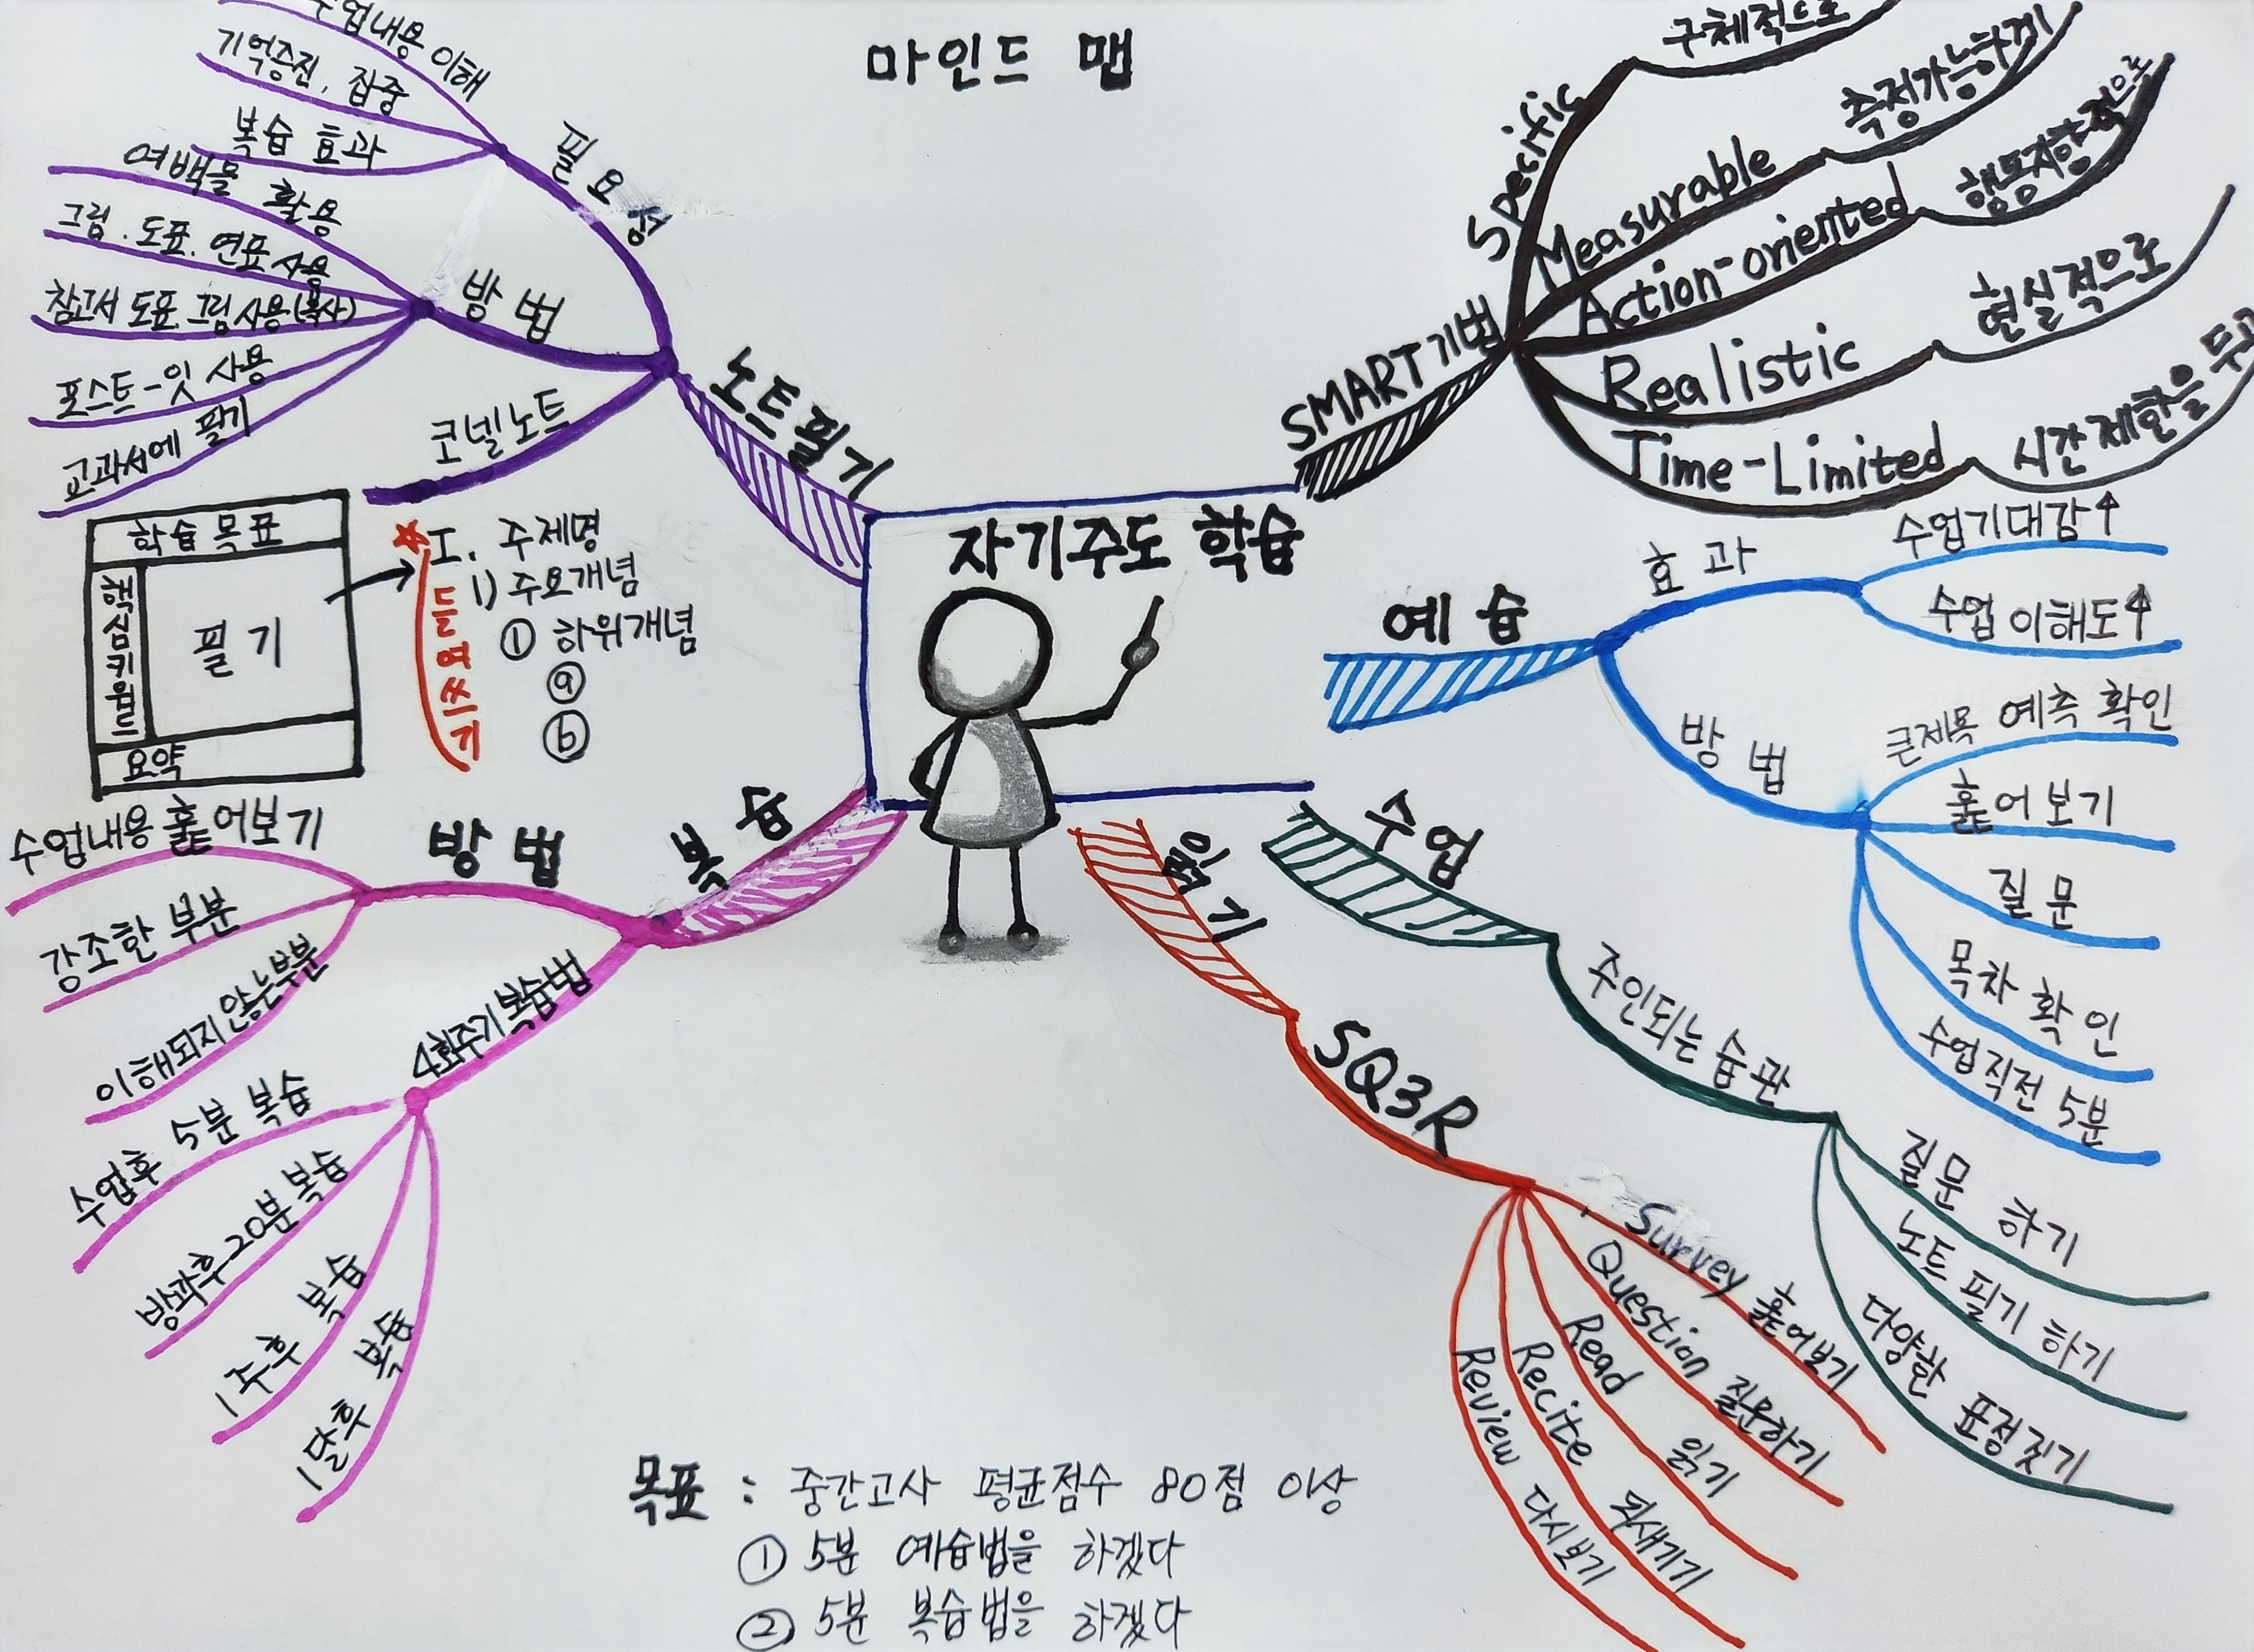 마인드 맵
자기주도 학습
SMART기법
Specific
구체적으로
Measurable
측정가능하게
Action-oriented
행동지향적으로
Realistic
현실적으로
Time-Limited
시간제한을 두고
예습
효과
수업기대감↑
수업 이해도↑
방법
큰제목 예측 확인
훑어보기
질문
목차 확인
수업직전 5분
수업
주인되는 습관
질문 하기
노트 필기 하기
다양한 표정짓기
읽기
SQ3R
Survey 훑어보기
Question 질문하기
Read 읽기
Recite 되새기기
Review 다시보기
복습
방법
수업내용 훑어보기
강조한 부분
이해되지 않는부분
4회주기복습법
수업후 5분 복습
방과후 20분 복습
1주후 복습
1달후 복습
노트필기
필요성
수업내용 이해
기억증진, 집중
복습 효과
방법
여백을 활용
그림. 도표. 연표 사용
참고서 도표. 그림사용(복사)
포스트-잇 사용
교과서에 필기
코넬노트
학습 목표
핵심키워드
필기
요약
I. 주제명
1) 주요개념
① 하위개념
ⓐ
ⓑ
들여쓰기
목표 : 중간고사 평균점수 80점 이상
① 5분 예습법을 하겠다
② 5분 복습법을 하겠다